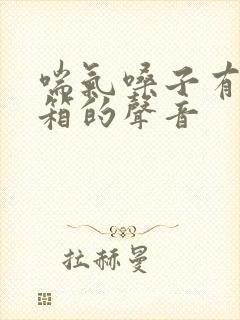 喘氣嗓子有
箱的聲音
拉赫曼